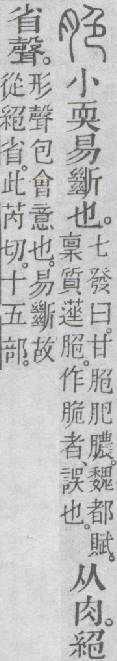 脃小耎易斷也。
七發曰。甘脃肥膿。魏都賦。
稟質遳脃。作脆者、誤也。
从肉。絕
省聲。
形聲包會意也。易斷故
從絕省。此芮切。十五部。